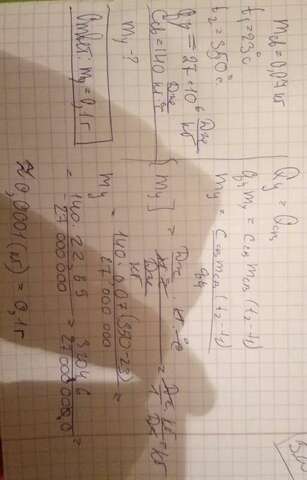 m_сл = 0,07 кг
t₁ = 23°C
t₂ = 350°C
q_у = 27·10⁶ Дж/кг
C_сл = 140 Дж/кг·°C
m_у - ?
Ответ: m_у = 0,1 г
Q_у = Q_сл
q_у m_у = C_сл m_сл (t₂ - t₁)
m_у = C_сл m_сл (t₂ - t₁) / q_у
[m_у] = Дж/кг·°C · кг·°C / Дж/кг = Дж·кг/Дж = кг
m_у = 140·0,07(350-23) / 27 000 000 =
= 140·22,89 / 27 000 000 = 3204,6 / 27 000 000,0 =
≈ 0,0001 (кг) = 0,1 г